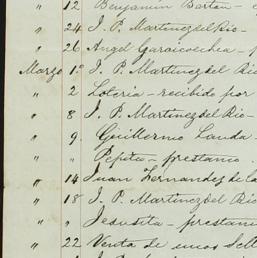 " 12 Benjamin Barton -
" 24 J. P. Martinez del Rio -
" 26 Angel Garaicoechea -
Marzo 1º J. P. Martinez del Rio
" 2 Loteria - recibido por
" 8 J. P. Martinez del Rio -
" 9 Guillermo Landa -
" " Pepita - prestamo
" 14 Juan Fernandez de la
" 18 J. P. Martinez del Rio
" " Jesusita - prestamo
" 22 Venta de unos